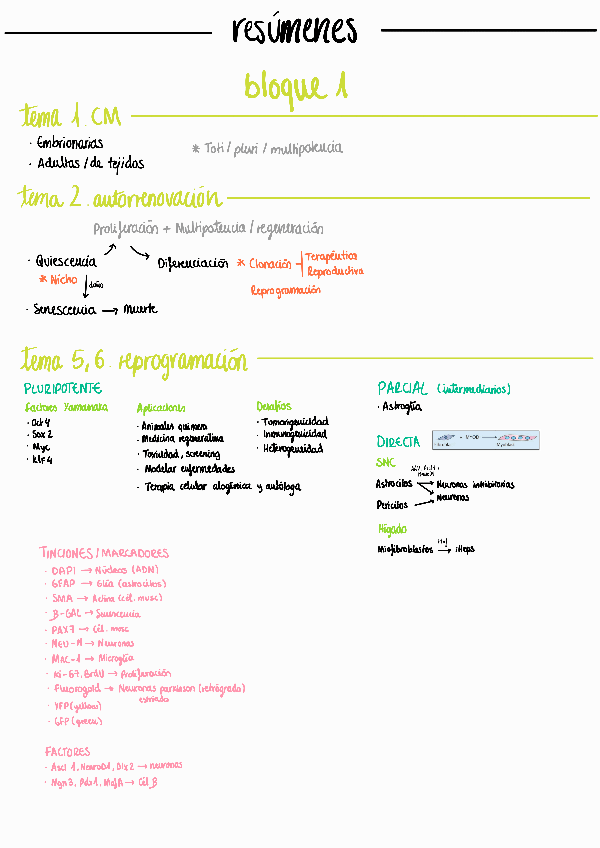 resúmenes
bloque 1
tema 1. CM
· Embrionarias
· Adultas / de tejidos
* Toti / pluri / multipotencia
tema 2. autorrenovación
Proliferación + Multipotencia / regeneración
· Quiescencia
* Nicho
daño
· Senescencia → Muerte
Diferenciación
* Clonación
Terapéutica
Reproductiva
Reprogramación
tema 5, 6. reprogramación
PLURIPOTENTE
Factores Yamanaka
· Oct 4
· Sox 2
· Myc
· Klf 4
Aplicaciones
· Animales quimera
· Medicina regenerativa
· Toxicidad, screening
· Modelar enfermedades
· Terapia celular alogénica y autóloga
Desafíos
· Tumorigenicidad
· Inmunogenicidad
· Heterogeneidad
PARCIAL (intermediarios)
· Astroglía
DIRECTA
+ MYOD
SNC
Astrocitos → Neuronas inhibitorias
Neuronas
Pericitos
Hígado
Miofibroblastos → iHeps
TINCIONES / MARCADORES
· DAPI → Núcleos (ADN)
· GFAP → Glía (astrocitos)
· SMA → Actina (cél. musc)
· β-GAL → Senescencia
· PAX7 → Cél. musc
· NEU-N → Neuronas
· MAC-1 → Microglía
· Ki-67, BrdU → Proliferación
· Fluorogold → Neuronas parkinson (retrógrado)
estriado
· YFP (yellow)
· GFP (green)
FACTORES
· Ascl 1, NeuroD1, Dlx2 → neuronas
· Ngn3, Pdx1, MafA → Cél β